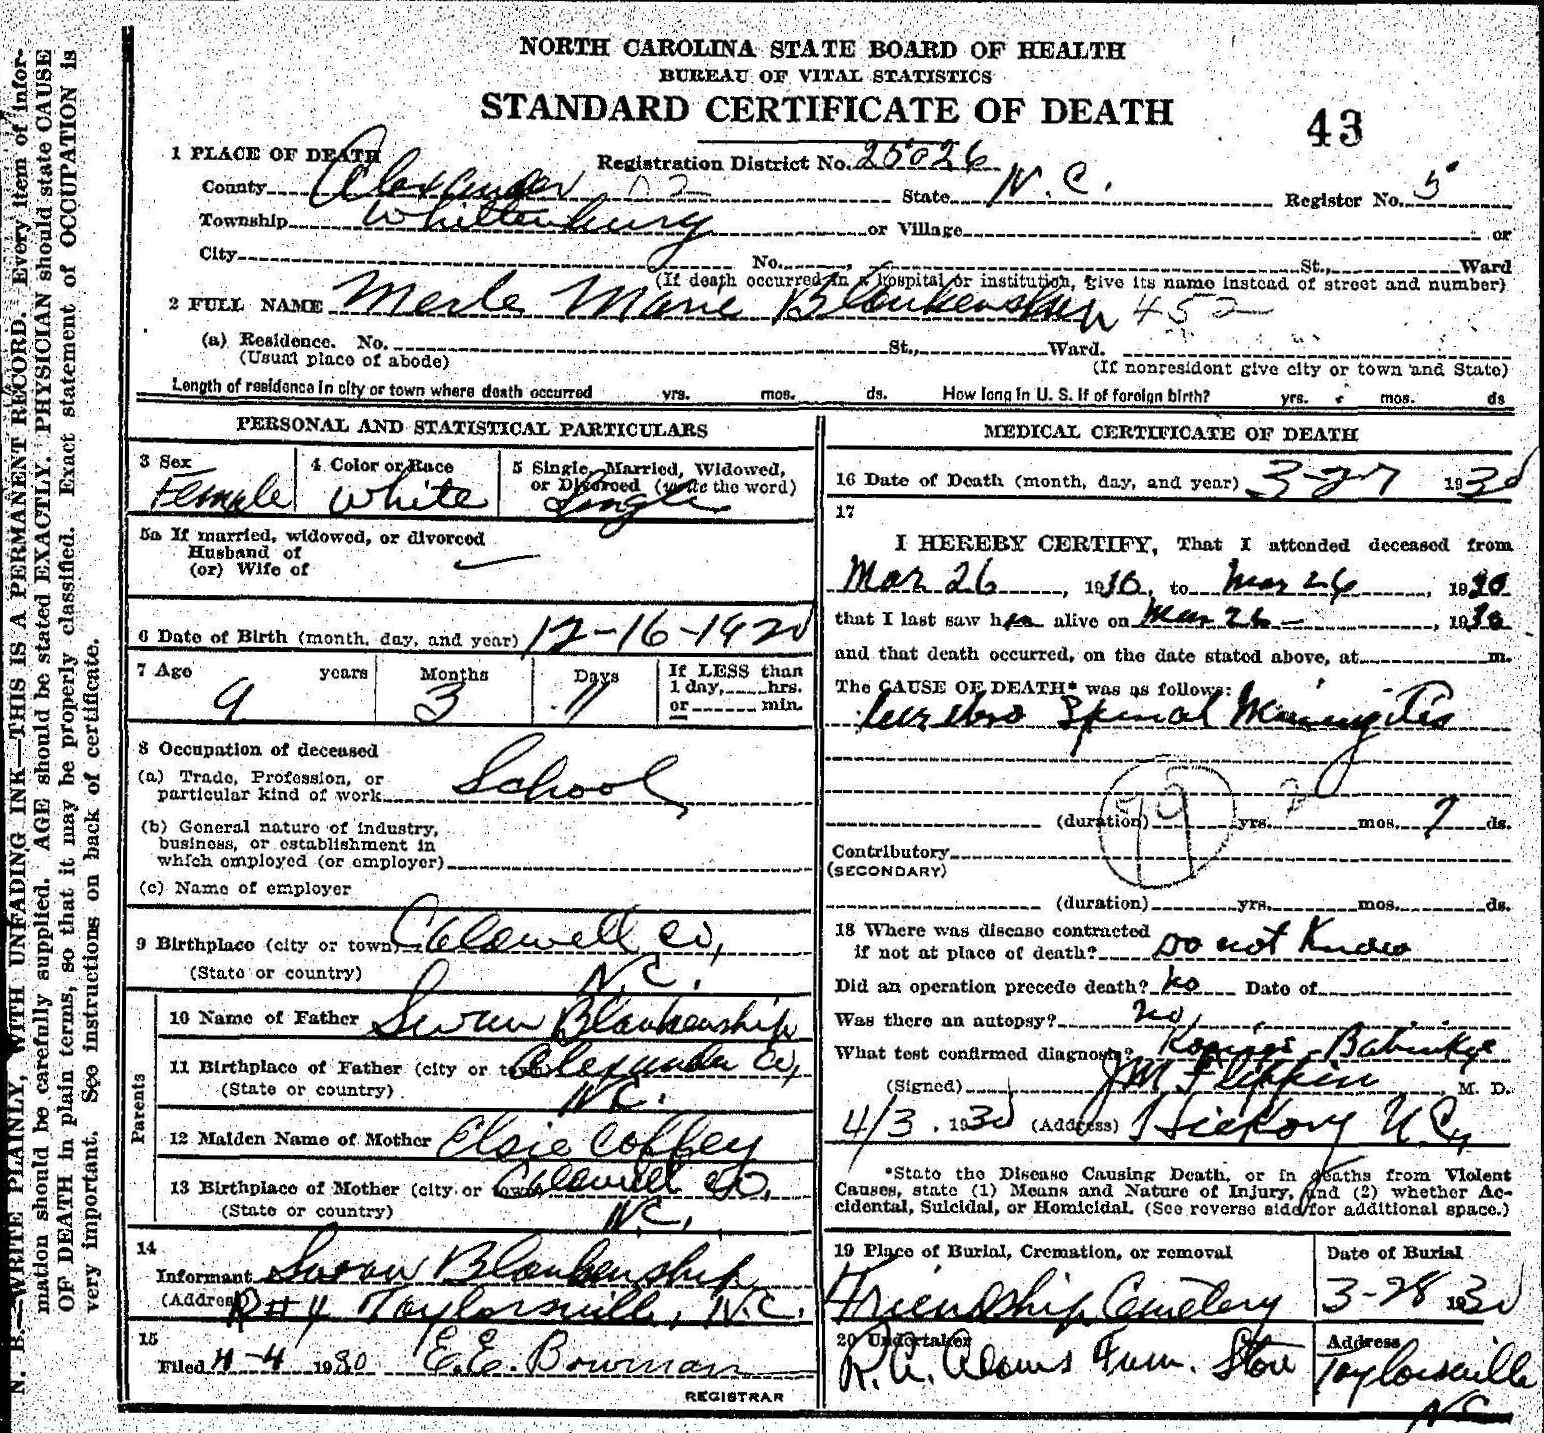 NORTH CAROLINA STATE BOARD OF HEALTH
BUREAU OF VITAL STATISTICS
STANDARD CERTIFICATE OF DEATH
43
1 PLACE OF DEATH
Registration District No. 25026
County Alexander 02 State N.C. Register No. 5
Township Whittenburg or Village or
City No. , St., Ward
(If death occurred in a hospital or institution, give its name instead of street and number)
2 FULL NAME Merle Marie Blankenship 452
(a) Residence. No. St., Ward.
(Usual place of abode) (If nonresident give city or town and State)
Length of residence in city or town where death occurred yrs. mos. ds. How long in U. S. if of foreign birth? yrs. mos. ds
PERSONAL AND STATISTICAL PARTICULARS
3 Sex 4 Color or Race 5 Single, Married, Widowed,
or Divorced (write the word)
Female White Single
5a If married, widowed, or divorced
Husband of
(or) Wife of
6 Date of Birth (month, day, and year) 12-16-1920
7 Age years Months Days If LESS than
1 day, hrs.
or min.
9 3 11
8 Occupation of deceased
(a) Trade, Profession, or
particular kind of work School
(b) General nature of industry,
business, or establishment in
which employed (or employer)
(c) Name of employer
9 Birthplace (city or town) Caldwell Co,
(State or country) N.C.
Parents
10 Name of Father Swan Blankenship
11 Birthplace of Father (city or town) Alexander Co,
(State or country) N.C.
12 Maiden Name of Mother Elsie Coffey
13 Birthplace of Mother (city or town) Caldwell Co,
(State or country) N.C.
14
Informant Swan Blankenship
(Address) R#4 Taylorsville, N.C.
15
Filed 4-4 1930 E.E. Bowman
REGISTRAR
MEDICAL CERTIFICATE OF DEATH
16 Date of Death (month, day, and year) 3-27 1930
17
I HEREBY CERTIFY, That I attended deceased from
Mar 26, 1930, to Mar 26, 1930
that I last saw her alive on Mar 26 -, 1930
and that death occurred, on the date stated above, at m.
The CAUSE OF DEATH* was as follows:
Cerebro Spinal Meningitis
79 2
(duration) yrs. mos. 7 ds.
Contributory
(SECONDARY)
(duration) yrs. mos. ds.
18 Where was disease contracted
if not at place of death? Do not Know
Did an operation precede death? No Date of
Was there an autopsy? no
What test confirmed diagnosis?
(Signed) J M Flippin M. D.
4/3, 1930 (Address) Hickory N.C.
*State the Disease Causing Death, or in deaths from Violent
Causes, state (1) Means and Nature of Injury, and (2) whether Ac-
cidental, Suicidal, or Homicidal. (See reverse side for additional space.)
19 Place of Burial, Cremation, or removal Date of Burial
Friendship Cemetery 3-28 1930
20 Undertaker Address
R.A. Adams Furn. Store Taylorsville
N.C.
N. B.—WRITE PLAINLY, WITH UNFADING INK—THIS IS A PERMANENT RECORD. Every item of infor-
mation should be carefully supplied. AGE should be stated EXACTLY. PHYSICIAN should state CAUSE
OF DEATH in plain terms, so that it may be properly classified. Exact statement of OCCUPATION is
very important. See instructions on back of certificate.